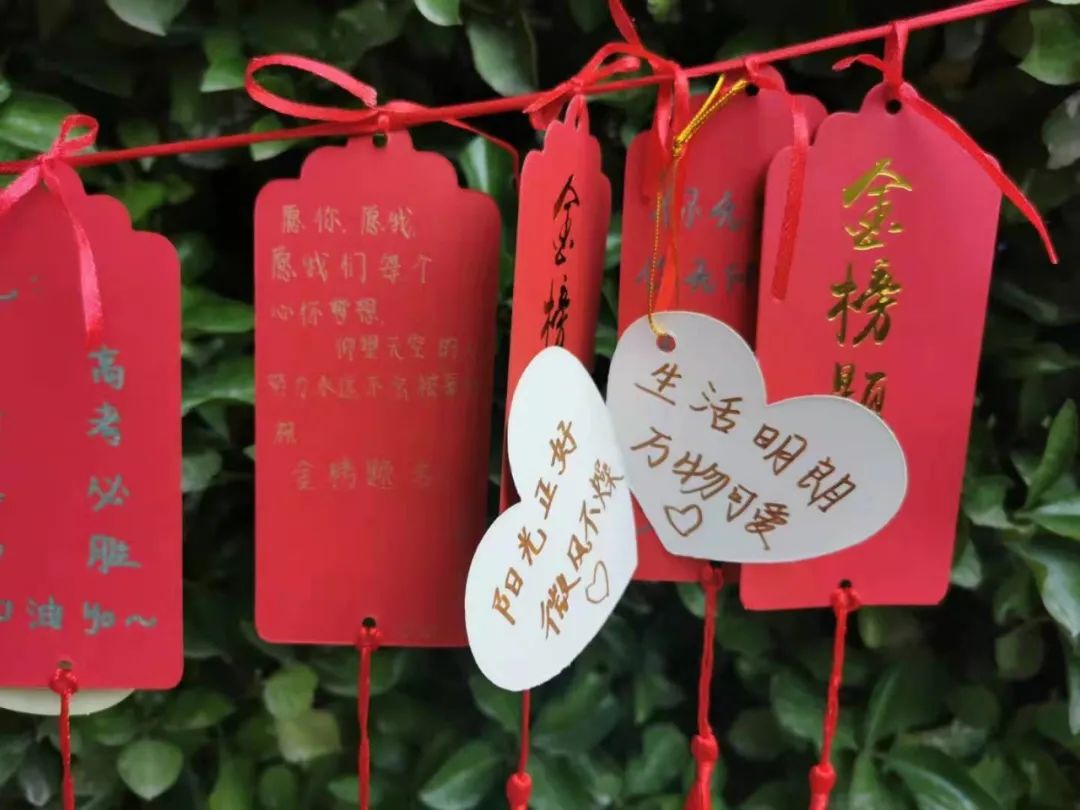 高考必胜
油 yo~
愿你,愿我,
愿我们每个
心怀梦想,
仰望天空的人
努力永远不会被辜
金榜题名
金榜
阳光正好
微风不燥
♡
生活明朗
万物可爱
♡
金榜题